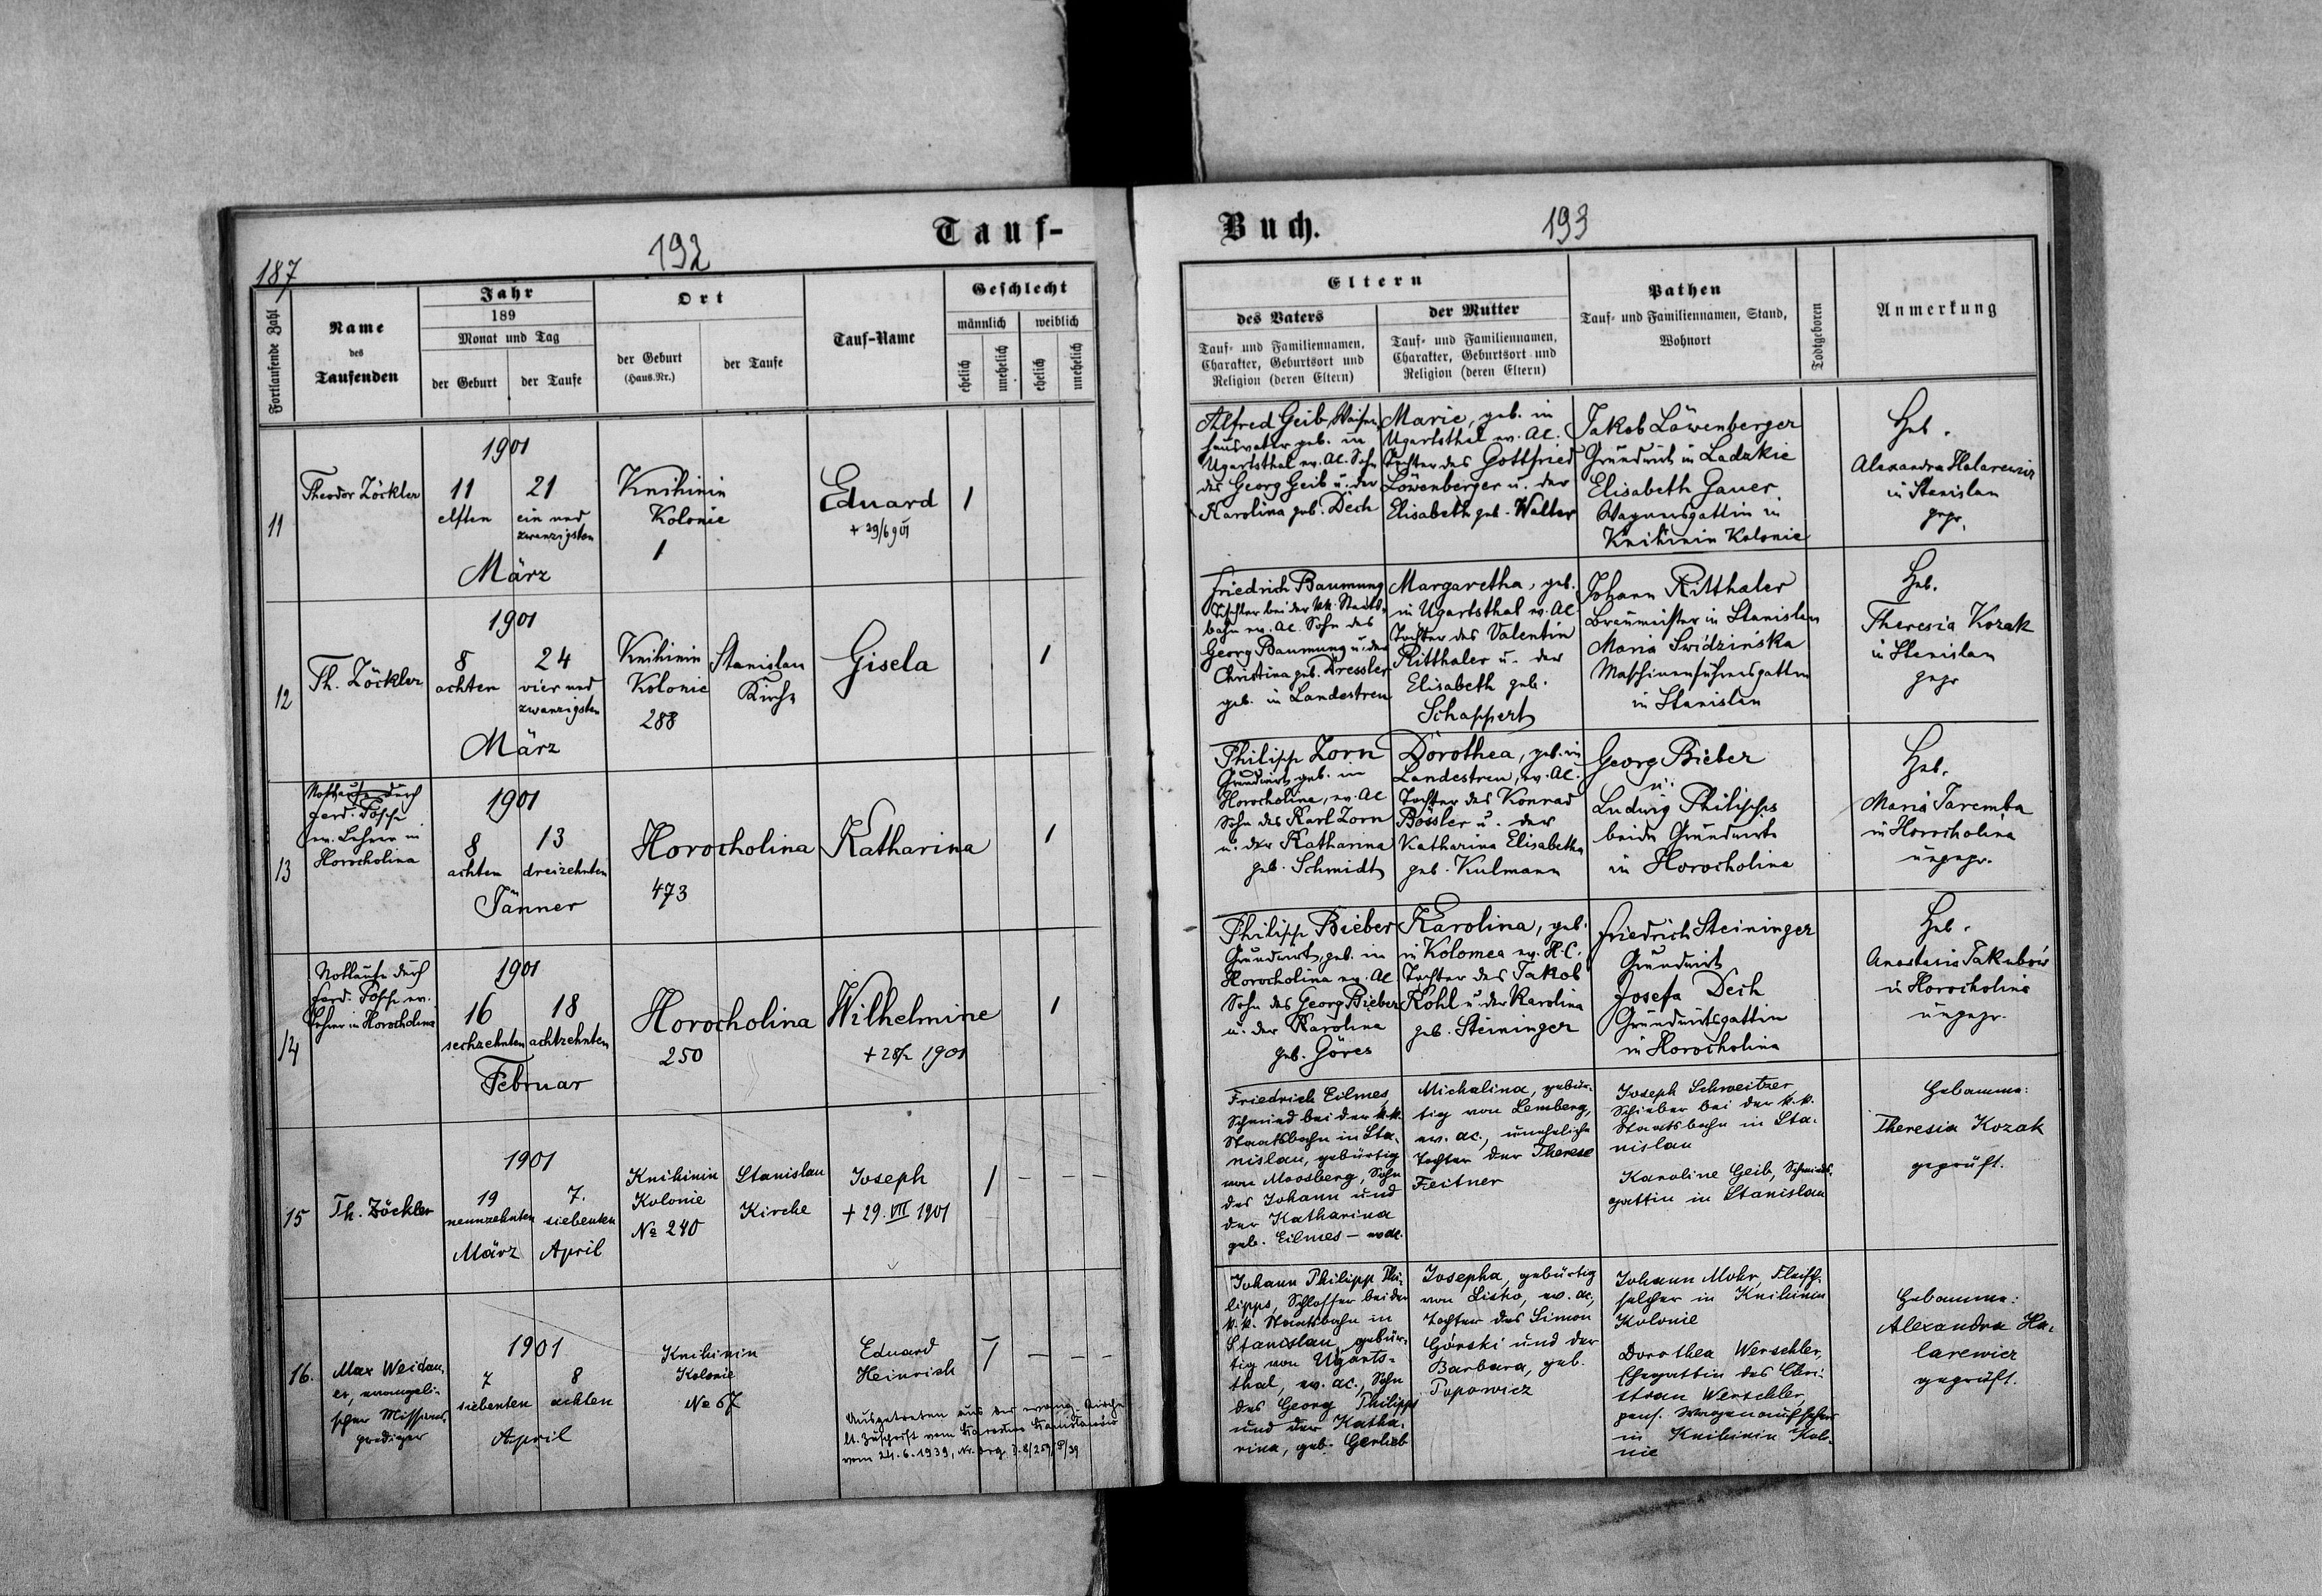 187
192
Tauf-
Fortlaufende Zahl
Name
des
Taufenden
Jahr
189
Monat und Tag
der Geburt
der Taufe
Ort
der Geburt
(Haus.Nr.)
der Taufe
Tauf-Name
Geschlecht
männlich
weiblich
ehelich
unehelich
ehelich
unehelich
11
Theodor Zöckler
1901
11
elften
21
ein und
zwanzigsten
März
Knihinin
Kolonie
1
Eduard
1
12
Th. Zöckler
1901
8
achten
24
vier und
zwanzigsten
März
Knihinin
Kolonie
288
Stanislau
Kirche
Gisela
1
13
Nottaufe durch
Ferd. Posche
ev. Lehrer in
Horocholina
1901
8
achten
13
dreizehnten
Jänner
Horocholina
473
Katharina
1
14
Nottaufe durch
Ferd. Posche ev.
Lehrer in Horocholina
1901
16
sechzehnten
18
achtzehnten
Februar
Horocholina
250
Wilhelmine
+ 28/2 1901
1
15
Th. Zöckler
1901
19
neunzehnten
März
7.
siebenten
April
Knihinin
Kolonie
№ 240
Stanislau
Kirche
Joseph
+ 29. VII 1901
1 – – –
16.
Max Weidau-
er, evangeli-
scher Missions-
prediger
1901
7
siebenten
8
achten
April
Knihinin
Kolonie
№ 67
Eduard
Heinrich
1 – – –
Ausgetreten aus der evang. Kirche
lt. Zuschrift vom
vom 24.6.1939,
Buch.
193
Eltern
des Vaters
Tauf- und Familiennamen,
Charakter, Geburtsort und
Religion (deren Eltern)
der Mutter
Tauf- und Familiennamen,
Charakter, Geburtsort und
Religion (deren Eltern)
Pathen
Tauf- und Familiennamen, Stand,
Wohnort
Todtgeboren
Anmerkung
Alfred Geib, Waisen-
hausvater geb. in
Ugartsthal ev. AC. Sohn
des Georg Geib u. der
Karolina geb. Dech
Marie, geb. in
Ugartsthal ev. AC.
Tochter des Gottfried
Löwenberger u. der
Elisabeth geb. Walter
Jakob Löwenberger
Grundwirt in Ladzkie
Elisabeth Gauer
Wagnersgattin in
Knihinin Kolonie
Heb.
Alexandra Halarewicz
in Stanislau
gepr.
Friedrich Baumung
Tischler bei der kk. Staats-
bahn ev. AC. Sohn des
Georg Baumung u. der
Christina geb. Dressler
geb. in Landestreu
Margaretha, geb.
in Ugartsthal ev. AC
Tochter des Valentin
Ritthaler u. der
Elisabeth geb.
Schappert
Johann Ritthaler
Braumeister in Stanislau
Maria Swidzińska
Maschinenführersgattin
in Stanislau
Heb.
Theresia Kozak
in Stanislau
gepr
Philipp Zorn
Grundwirt, geb. in
Horocholina, ev. AC
Sohn des Karl Zorn
u. der Katharina
geb. Schmidt
Dorothea, geb. in
Landestreu, ev. AC.
Tochter des Konrad
Bössler u. der
Katharina Elisabetha
geb. Kulmann
Georg Bieber
u.
Ludwig Philipps
beide Grundwirte
in Horocholina
Heb.
Maria Jaremba
in Horocholina
ungepr.
Philipp Bieber
Grundwirt, geb. in
Horocholina ev. AC
Sohn des Georg Bieber
u. der Karolina
geb. Göres
Karolina, geb.
in Kolomea ev. H.C.
Tochter des Jakob
Kohl u. der Karolina
geb. Steininger
Friedrich Steininger
Grundwirt
Josefa Dech
Grundwirtsgattin
in Horocholina
Heb.
Anastasia Jakubów
in Horocholina
ungepr.
Friedrich Eilmes,
Schmied bei der k.k.
Staatsbahn in Sta-
nislau, gebürtig
von Moosberg, Sohn
des Johann und
der Katharina
geb. Eilmes – ev. ac.
Michalina, gebür-
tig von Lemberg,
ev. ac., uneheliche
Tochter der Therese
Feitner
Joseph Schweitzer,
Schieber bei der k.k.
Staatsbahn in Sta-
nislau
Karoline Geib, Schmieds-
gattin in Stanislau
Hebamme:
Theresia Kozak
geprüft.
Johann Philipp Phi-
lipps, Schlosser bei der
k.k. Staatsbahn in
Stanislau, gebür-
tig von Ugarts-
thal, ev. ac., Sohn
des Georg Philipps
und der Katha-
rina, geb. Gerlieb
Josepha, gebürtig
von Lisko, ev. ac.,
Tochter des Simon
Górski und der
Barbara, geb.
Popowicz
Johann Mohr, Fleisch-
selcher in Knihinin
Kolonie
Dorothea Werschler,
Ehegattin des Chri-
stian Werschler,
pens. Wagenaufseher
in Knihinin Kolo-
nie
Hebamme:
Alexandra Ha-
larewicz
geprüft.